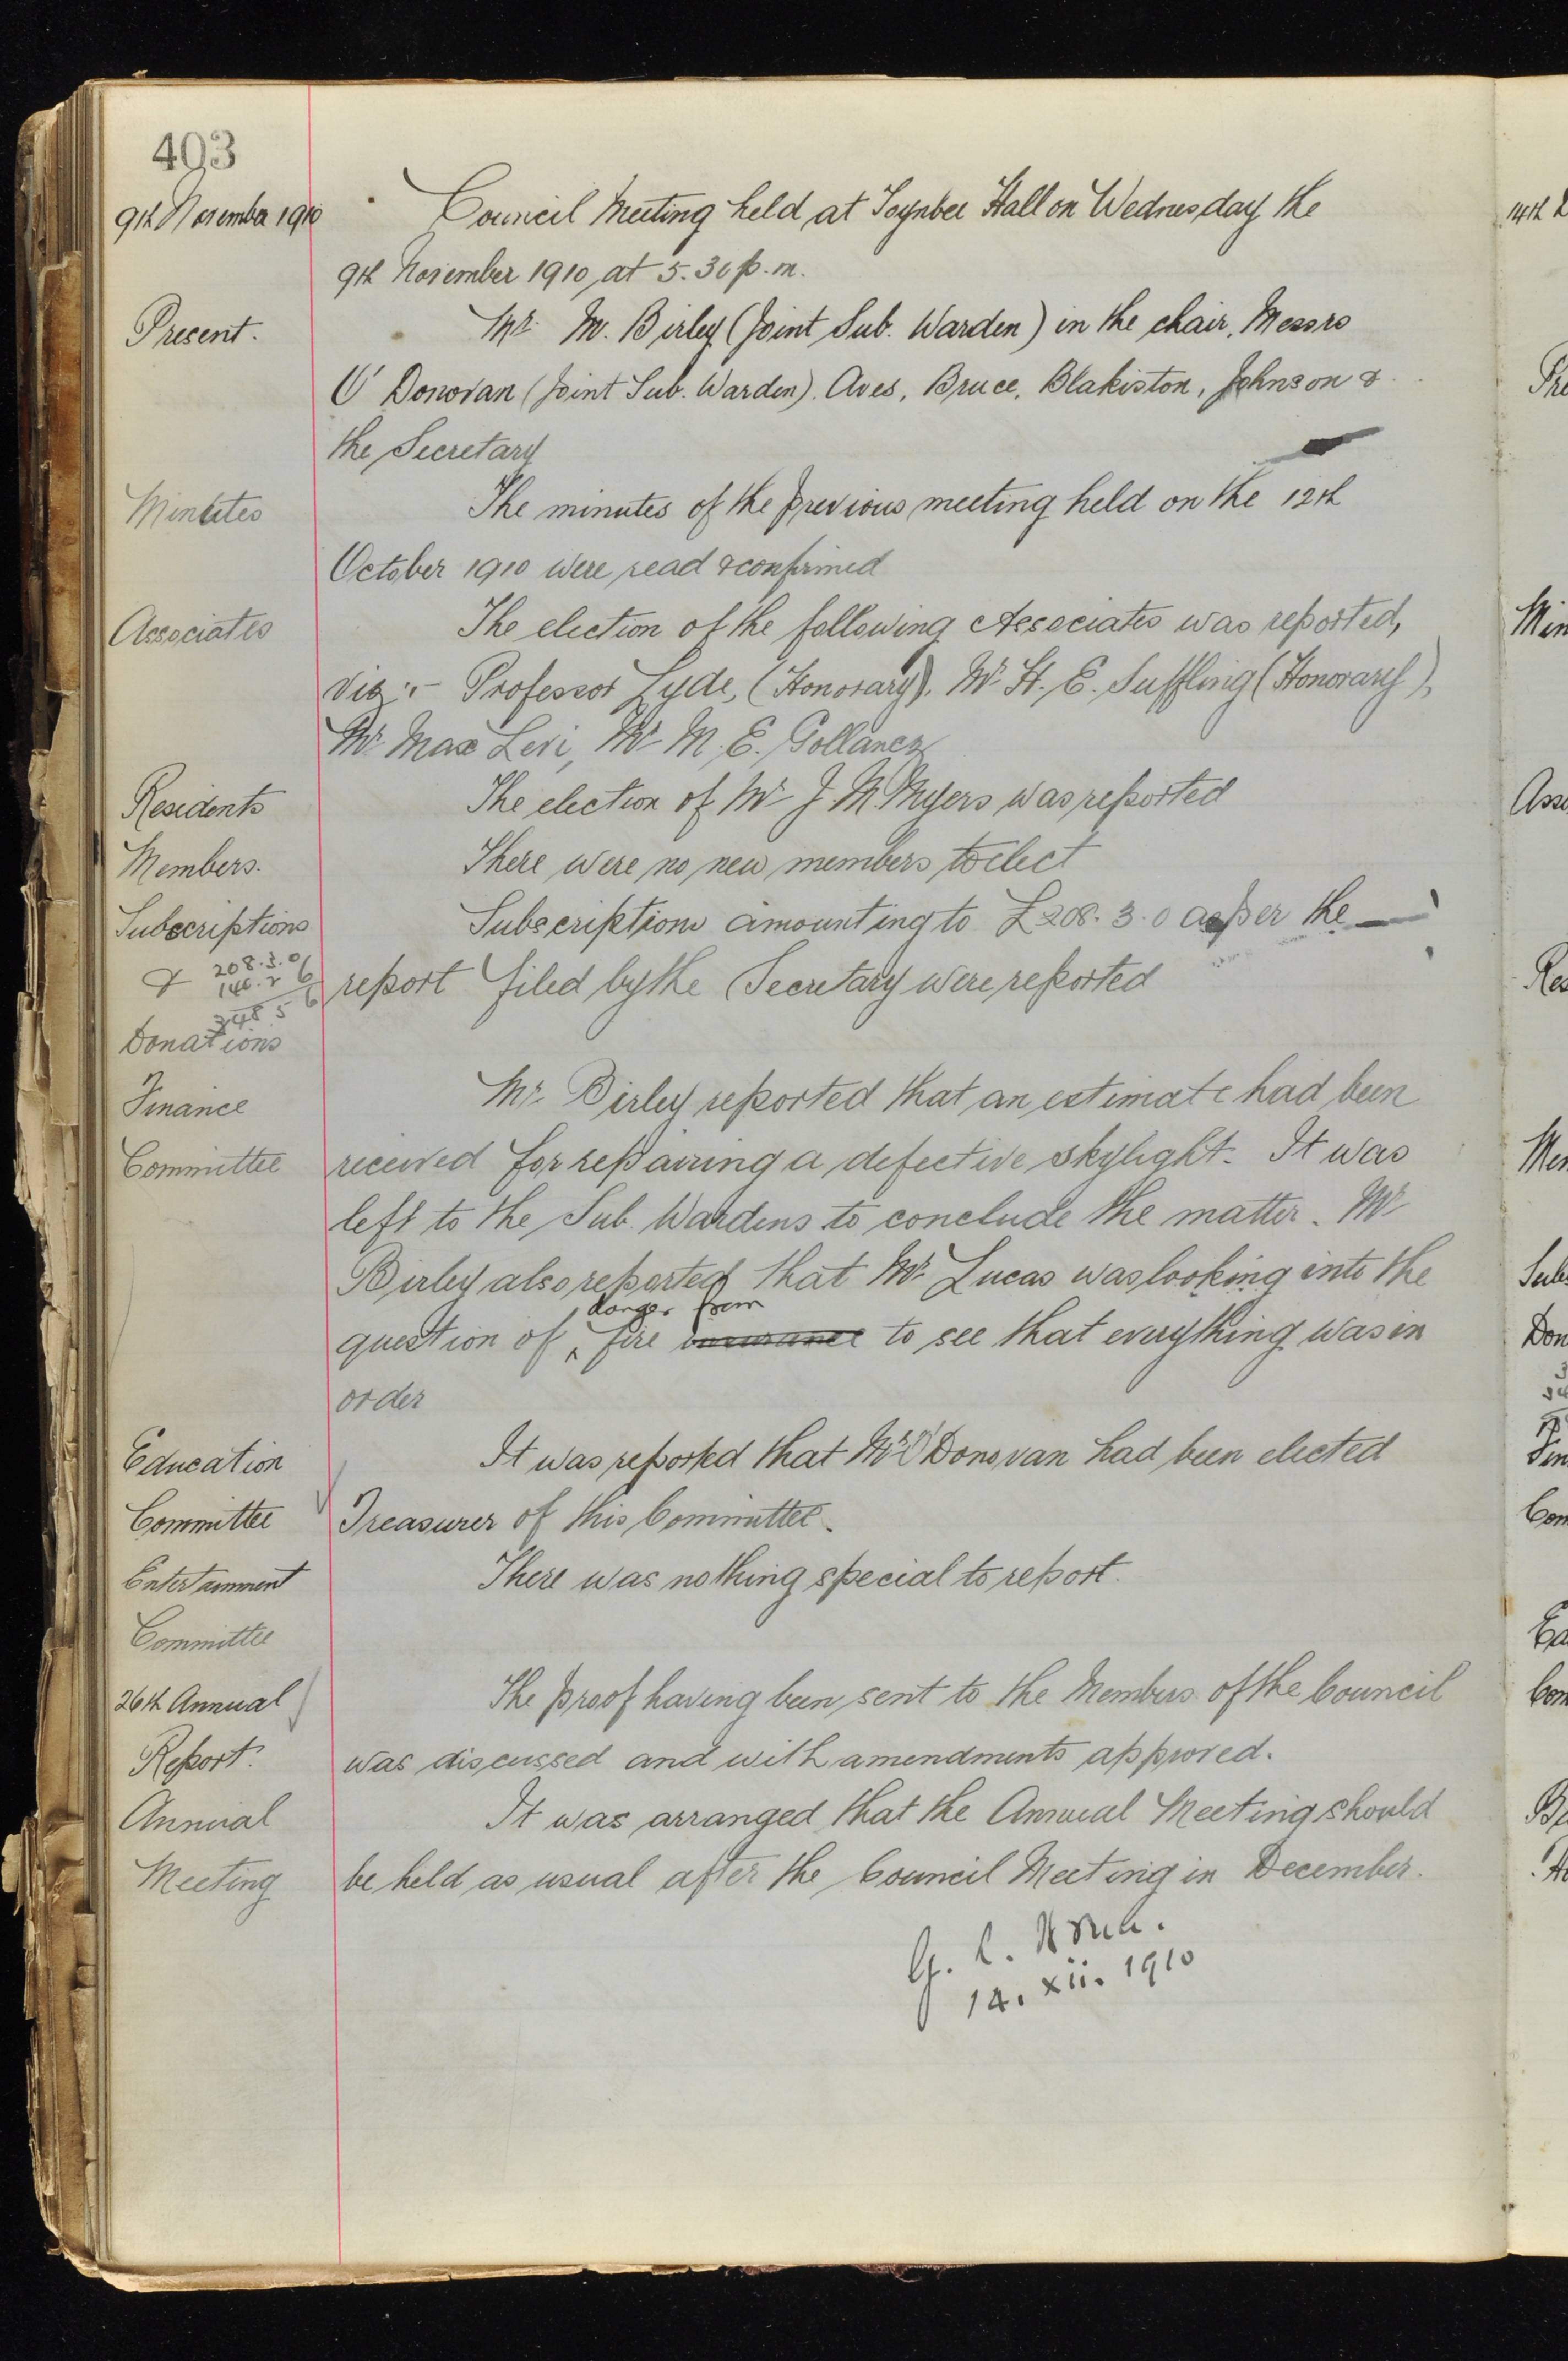 493
9th November 1910
Council Meeting held at Toynbee Hall on Wednesday the
9th November 1910, at 5.30 p.m.
Present.
Mr. M. Birley (Joint Sub. Warden) in the chair, Messrs
O'Donovan (Joint Sub. Warden). Aves, Bruce, Blakiston, Johnson &
the Secretary
Minutes
The minutes of the previous meeting held on the 12th
October 1910 were read & confirmed
Associates
The election of the following Associates was reported,
viz:- Professor Lyde, (Honorary), Mr. H. E. Suffling (Honorary),
Mr. Max Levi, Mr. M. E. Gollancz
Residents
The election of Mr J. M. Myers was reported
Members.
There were no new members to elect
Subscriptions
Subscriptions amounting to £208. 3. 0 as per the
& 208.3.0
146.2 6
report filed by the Secretary were reported
5 6
Donations
Finance
Mr. Birley reported that an estimate had been
Committee
received for repairing a defective skylight. It was
left to the Sub. Wardens to conclude the matter. Mr
Birley also reported that Mr. Lucas was looking into the
danger from
question of fire insurance to see that everything was in
order
Education
It was reported that Mr O'Donovan had been elected
Committee
Treasurer of this Committee.
Entertainment
There was nothing special to report.
Committee
26th Annual
The proof having been sent to the Members of the Council
Report.
was discussed and with amendments approved.
Annual
It was arranged that the Annual Meeting should
Meeting
be held as usual after the Council Meeting in December.
G. L.
14. xii. 1910
14th
Min
Mem
Don
Com